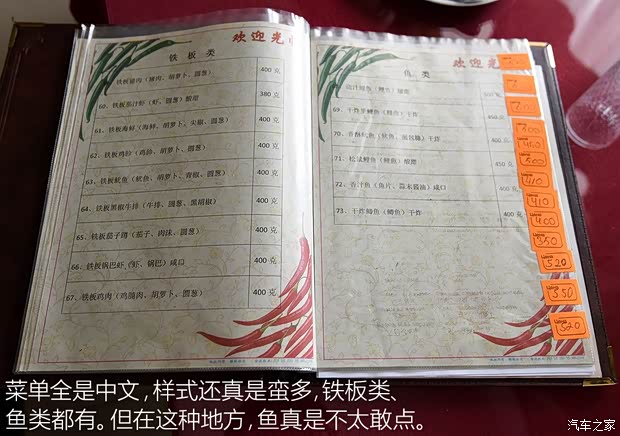 欢迎光
铁板类
铁板猪肉(猪肉、胡萝卜、圆葱) 400 克
60、铁板茄汁虾(虾、圆葱)酸甜 380 克
61、铁板海鲜(海鲜、胡萝卜、尖椒、圆葱) 400 克
62、铁板鸡胗(鸡胗、胡萝卜、圆葱) 400 克
63、铁板鱿鱼(鱿鱼、胡萝卜、青椒、圆葱) 400 克
64、铁板黑椒牛排(牛排、圆葱、黑胡椒) 400 克
65、铁板茄子(茄子、肉沫、圆葱) 400 克
66、铁板锅巴虾(虾、锅巴)咸口 400 克
67、铁板鸡肉(鸡脯肉、胡萝卜、圆葱) 400 克
欢迎光
鱼类
茄汁鲤鱼(鲤鱼)酸甜
69、干炸里鲤鱼(鲤鱼)干炸 450 克
70、香酥鱿鱼(鱿鱼、面包糠)干炸 400 克
71、松鼠鲤鱼(鲤鱼)酸甜 450 克
72、香汁鱼(鱼片、蒜末酱油)咸口 400 克
73、干炸鳟鱼(鳟鱼)干炸 400 克
300
400
500
410
410
400
350
520
350
520
菜单全是中文,样式还真是蛮多,铁板类、
鱼类都有。但在这种地方,鱼真是不太敢点。
汽车之家